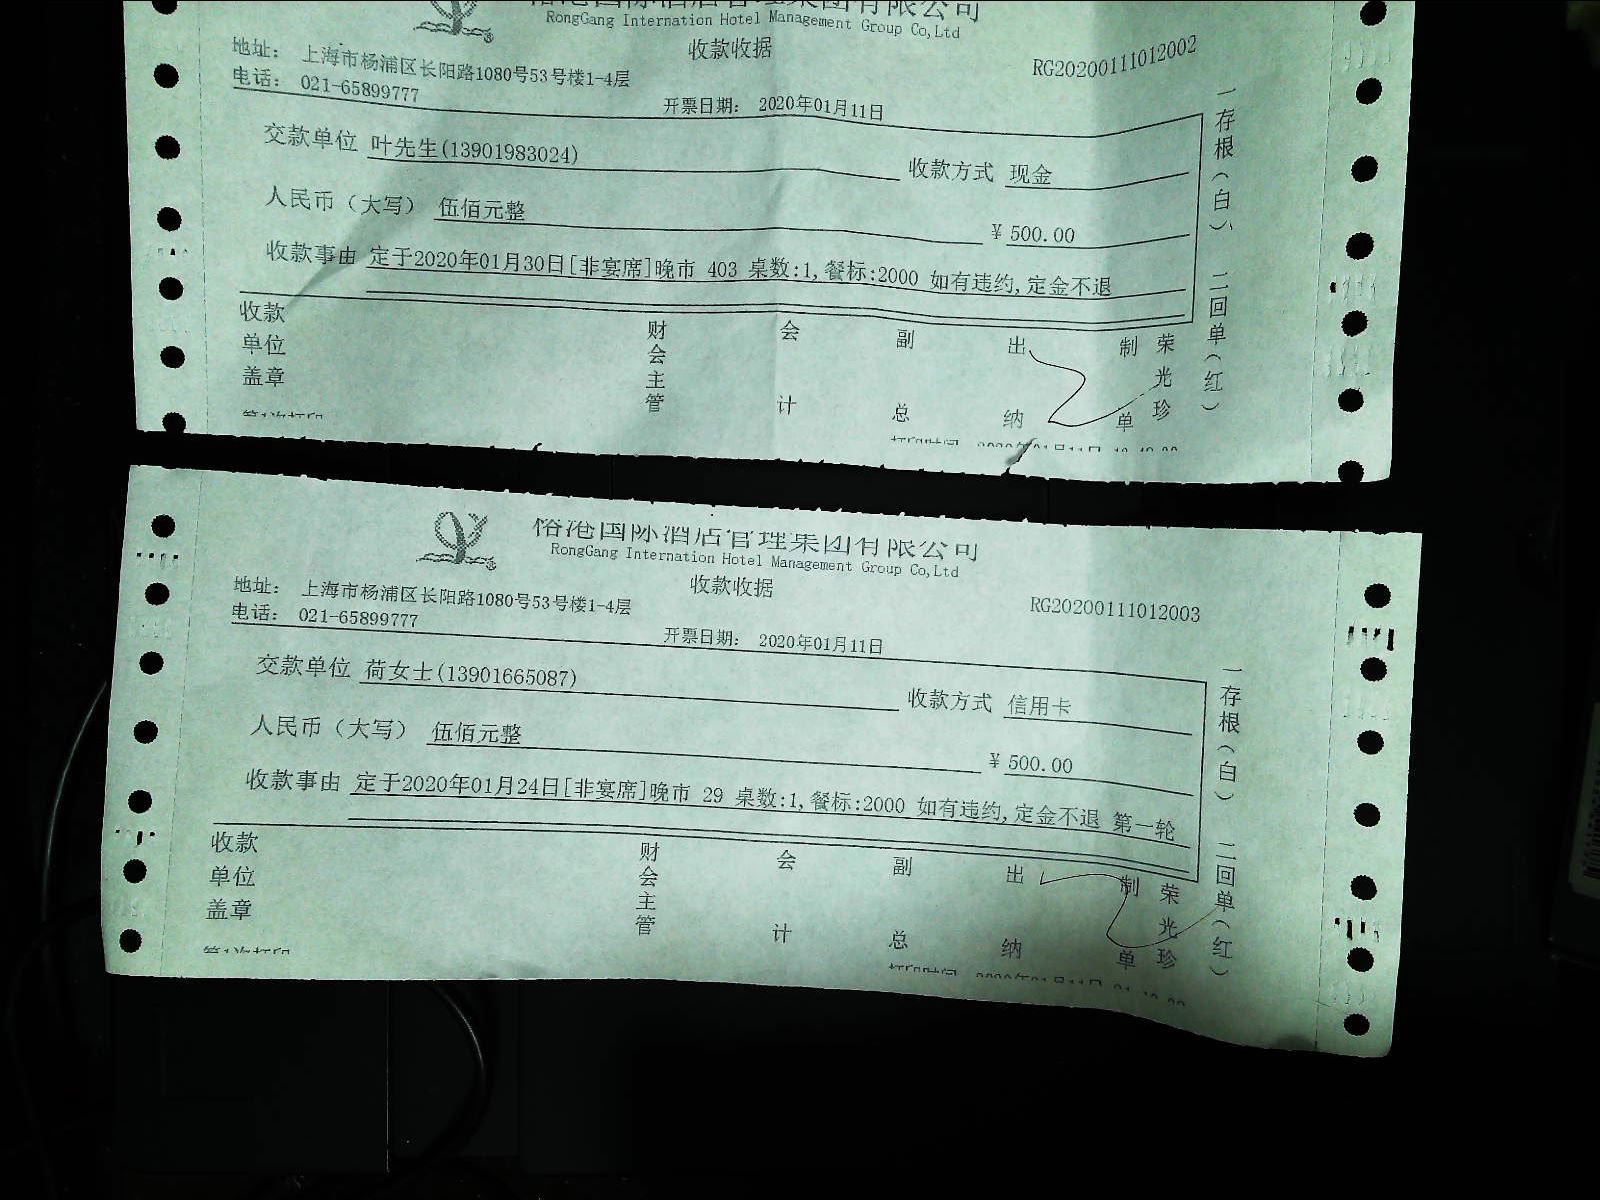 国际酒店管理集团有限公司
RongGang Internation Hotel Management Group Co,Ltd
收款收据
RG20200111012002
地址： 上海市杨浦区长阳路1080号53号楼1-4层
电话： 021-65899777
开票日期： 2020年01月11日
交款单位 叶先生(13901983024) 收款方式 现金
人民币（大写） 伍佰元整 ¥ 500.00
收款事由 定于2020年01月30日[非宴席]晚市 403 桌数:1,餐标:2000 如有违约,定金不退
收款单位盖章 财会主管 会计 副总 出纳 制单 荣光珍
一存根（白） 二回单（红）
第1次打印
打印时间 2020年01月11日
榕港国际酒店管理集团有限公司
RongGang Internation Hotel Management Group Co,Ltd
收款收据
RG20200111012003
地址： 上海市杨浦区长阳路1080号53号楼1-4层
电话： 021-65899777
开票日期： 2020年01月11日
交款单位 荷女士(13901665087) 收款方式 信用卡
人民币（大写） 伍佰元整 ¥ 500.00
收款事由 定于2020年01月24日[非宴席]晚市 29 桌数:1,餐标:2000 如有违约,定金不退 第一轮
收款单位盖章 财会主管 会计 副总 出纳 制单 荣光珍
一存根（白） 二回单（红）
第1次打印
打印时间 2020年01月11日